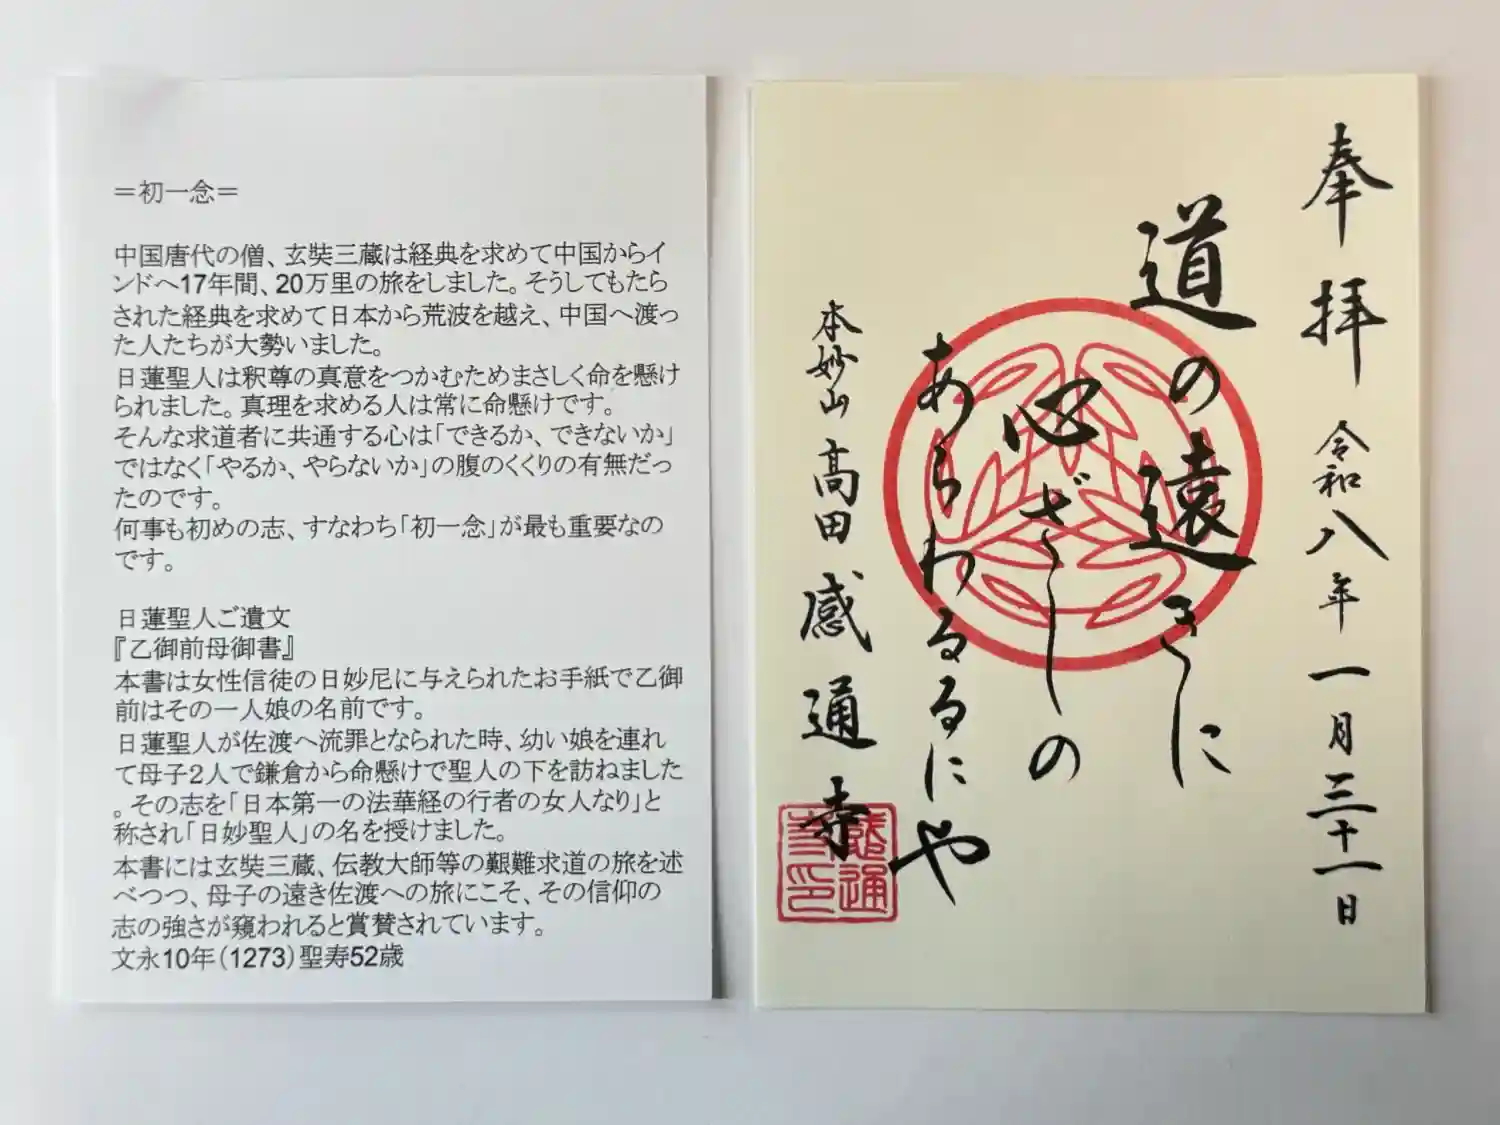 ＝初一念＝
中国唐代の僧、玄奘三蔵は経典を求めて中国からイ
ンドへ17年間、20万里の旅をしました。そうしてもたら
された経典を求めて日本から荒波を越え、中国へ渡っ
た人たちが大勢いました。
日蓮聖人は釈尊の真意をつかむためまさしく命を懸け
られました。真理を求める人は常に命懸けです。
そんな求道者に共通する心は「できるか、できないか」
ではなく「やるか、やらないか」の腹のくくりの有無だっ
たのです。
何事も初めの志、すなわち「初一念」が最も重要なの
です。
日蓮聖人ご遺文
『乙御前母御書』
本書は女性信徒の日妙尼に与えられたお手紙で乙御
前はその一人娘の名前です。
日蓮聖人が佐渡へ流罪となられた時、幼い娘を連れ
て母子２人で鎌倉から命懸けで聖人の下を訪ねました
。その志を「日本第一の法華経の行者の女人なり」と
称され「日妙聖人」の名を授けました。
本書には玄奘三蔵、伝教大師等の艱難求道の旅を述
べつつ、母子の遠き佐渡への旅にこそ、その信仰の
志の強さが窺われると賞賛されています。
文永10年（1273）聖寿52歳
奉拝 令和八年一月三十一日
道の遠きに
心ざしの
あらわるるにや
本妙山 高田 感通寺
感通
寺印